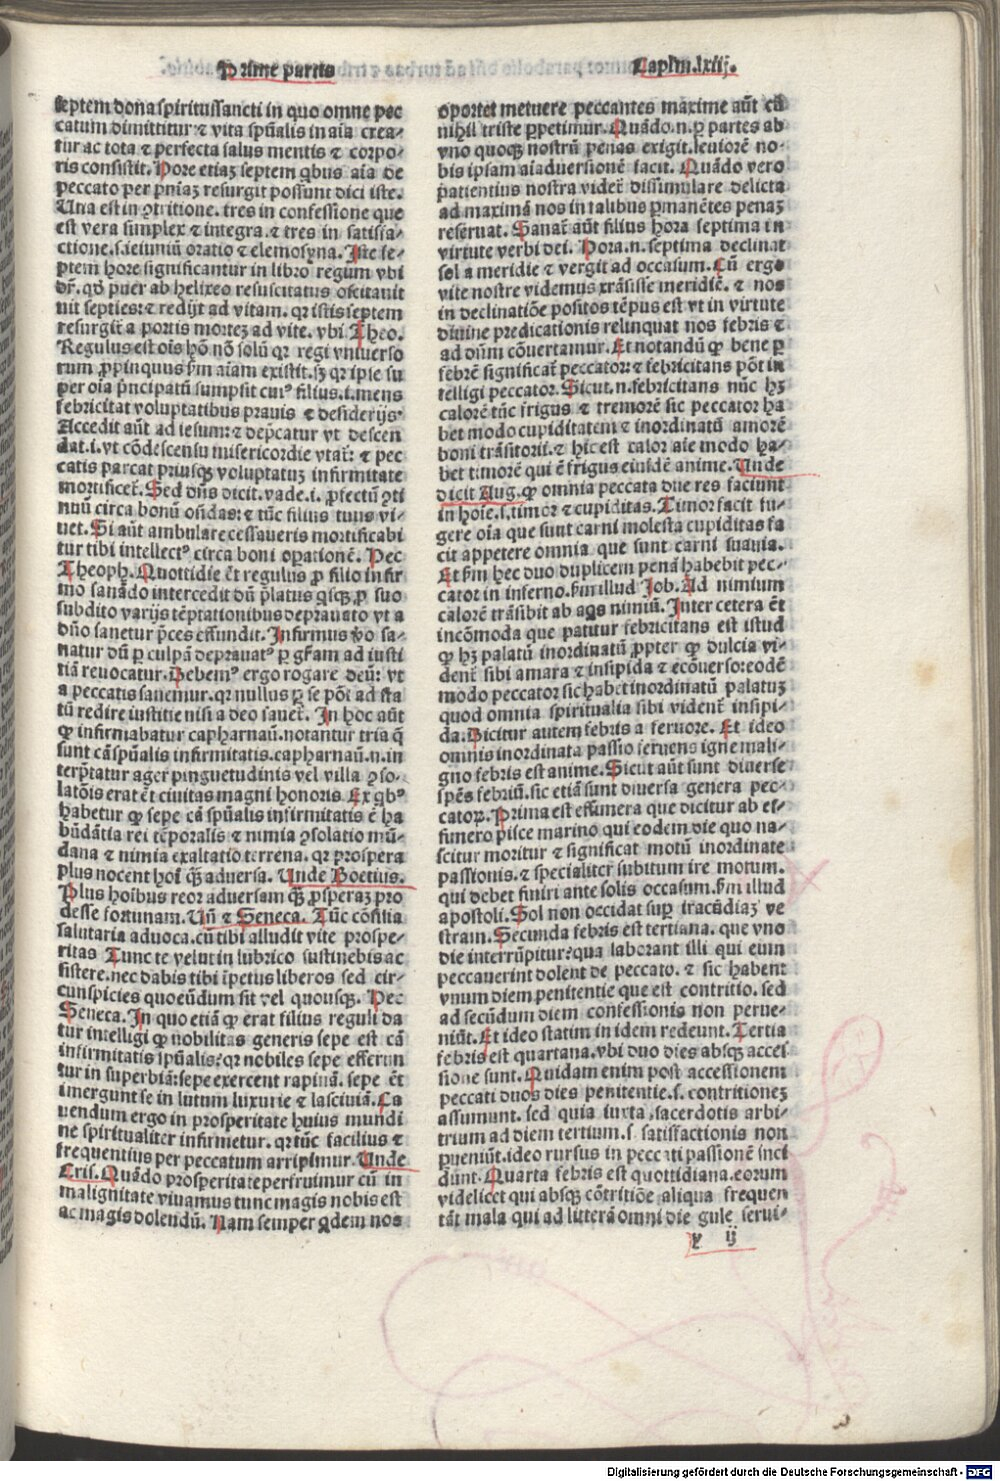 Prime partis
Caplm.lxij.
septem dona spiritussancti in quo omne pec
catum dimittitur ⁊ vita spũalis in aĩa crea⸗
tur ac tota ⁊ perfecta salus mentis ⁊ corpo⸗
ris consistit. Hore etiaʒ septem qbus aĩa de
peccato per pniaʒ resurgit possunt dici iste.
Una est in ꝯtritione. tres in confessione que
est vera simplex ⁊ integra. ⁊ tres in satisfa⸗
ctione. s. ieiuniũ oratio ⁊ elemosyna. Iste se⸗
ptem hore significantur in libro regum vbi
dr̃. qđ puer ab helixeo resuscitatus oscitauit
uit septies: ⁊ redijt ad vitam. qr istis septem
resurgit̃ a portis morteʒ ad vite. vbi Theo.
Regulus est oĩs hõ nõ solũ qr regi vniuerso
rum ꝓpinquus ẜm aĩam existit. sʒ qr ipse su
per oĩa pncipatũ sumpsit cui⁹ filius. i. mens
febricitat voluptatibus prauis ⁊ desiderijs.
Accedit aũt ad iesum: ⁊ dep̃catur vt descen
dat. i. vt cõdescensu misericordie vtat̃: ⁊ pec
catis parcat priusqʒ voluptatuʒ infirmitate
mortificet̃. Sed dñs dicit. vade. i. ꝓfectũ ꝯti
nuũ circa bonũ oñdas: ⁊ tũc filius tuus vi⸗
uet. Si aũt ambulare cessaueris mortificabi
tur tibi intellect⁹ circa boni oꝑationẽ. Hec
Theoph. Quottidie ẽt regulus ꝓ filio infir
mo sanãdo intercedit dũ p̃latus qsqʒ ꝓ suo
subdito varijs tẽptationibus deprauato vt a
dño sanetur p̃ces effundit. Infirmus ṽo sa⸗
natur dũ ꝑ culpã deprauat⁹ ꝑ gr̃am ad iusti
tiã reuocatur. Debem⁹ ergo rogare deũ: vt
a peccatis sanemur. qr nullus ꝑ se põt ad sta
tũ redire iustitie nisi a deo sanet̃. In hoc aũt
ꝙ infirmabatur capharnaũ. notantur tria q̃
sunt cã spũalis infirmitatis. capharnaũ. n. in
terp̃tatur ager pinguetudinis vel villa ꝯso⸗
latõis erat ẽt ciuitas magni honoris. Ex qb⁹
habetur ꝙ sepe cã spũalis infirmitatis ẽ ha
bũdãtia rei tẽporalis ⁊ nimia ꝯsolatio mũ⸗
dana ⁊ nimia exaltatio terrena. qr prospera
plus nocent hoĩ qʒ aduersa. Unde Boetius.
Plus hoĩbus reor aduersam qʒ ꝓsperaʒ pro
desse fortunam. Uñ ⁊ Seneca. Tũc cõsilia
salutaria aduoca. cũ tibi alludit vite prospe⸗
ritas Tunc te velut in lubrico sustinebis ac
sistere. nec dabis tibi ĩpetus liberos sed cir⸗
cunspicies quoeũdum sit vel quousqʒ. Hec
Seneca. In quo etiã ꝙ erat filius reguli da
tur intelligi ꝙ nobilitas generis sepe est cã
infirmitatis spũalis: qr nobiles sepe efferun
tur in superbiã: sepe exercent rapinã. sepe ẽt
imergunt se in lutum luxurie ⁊ lasciuiã. Ca
uendum ergo in prosperitate huius mundi
ne spiritualiter infirmetur. qr tũc facilius ⁊
frequentius per peccatum arripimur. Unde
Cris. Quãdo prosperitate perfruimur cũ in
malignitate viuamus tunc magis nobis est
ac magis dolendũ. Nam semper qdem nos
oportet metuere peccantes maxime aũt cũ
nihil triste ꝑpetimur. Quãdo. n. ꝑ partes ab
vno quoqʒ nostrũ penas exigit. leuiorẽ no⸗
bis ipsam aĩaduersionẽ facit. Quãdo vero
patientius nostra videt̃ dissimulare delicta
ad maximã nos in talibus ꝑmanẽtes penaʒ
reseruat. Sanat̃ aũt filius hora septima in
virtute verbi dei. Hora. n. septima declinat
sol a meridie ⁊ vergit ad occasum. Cũ ergo
vite nostre videmus trãsisse meridiẽ. ⁊ nos
in declinatiõe positos tẽpus est vt in virtute
diuine predicationis relinquat nos febris ⁊
ad dñm cõuertamur. Et notandũ ꝙ bene ꝑ
febrẽ significat̃ peccator: ⁊ febricitans põt in
telligi peccator. Sicut. n. febricitans nũc hʒ
calorẽ tũc frigus ⁊ tremorẽ sic peccator ha
bet modo cupiditatem ⁊ inordinatũ amorẽ
boni trãsitorii. ⁊ hic est calor aĩe modo ha⸗
bet timorẽ qui ẽ frigus eiusdẽ anime. Unde
dicit Aug. ꝙ omnia peccata due res faciunt
in hoĩe. s. timor ⁊ cupiditas. Timor facit fu⸗
gere oĩa que sunt carni molesta cupiditas fa
cit appetere omnia que sunt carni suauia.
Et ẜm hec duo duplicem penã habebit pec⸗
cator in inferno. ẜm illud Job. Ad nimium
calorẽ trãsibit ab aqs nimiũ. Inter cetera ẽt
incõmoda que patitur febricitans est istud
ꝙ hʒ palatũ inordinatũ ꝓpter ꝙ dulcia vi⸗
dent̃ sibi amara ⁊ insipida ⁊ ecõuerso: eodẽ
modo peccator sic habet inordinatũ palatuʒ
quod omnia spiritualia sibi vident̃ insipi⸗
da. Dicitur autem febris a feruore. Et ideo
omnis inordinata passio feruens igne mali⸗
gno febris est anime. Sicut aũt sunt diuerse
spẽs febriũ. sic etiã sunt diuersa genera pec⸗
catoꝝ. Prima est effimera que dicitur ab ef⸗
fimero pisce marino qui eodem die quo na⸗
scitur moritur ⁊ significat motũ inordinate
passionis. ⁊ specialiter subitum ire motum.
qui debet finiri ante solis occasum. ẜm illud
apostoli. Sol non occidat suꝑ iracũdiaʒ ve
stram. Secunda febris est tertiana. que vno
die interrũpitur: qua laborant illi qui cum
peccauerint dolent de peccato. ⁊ sic habent
vnum diem penitentie que est contritio. sed
ad secũdum diem confessionis non perue⸗
niũt. Et ideo statim in idem redeunt. Tertia
febris est quartana. vbi duo dies absqʒ acces
sione sunt. Quidam enim post accessionem
peccati duos dies penitentie. s. contritioneʒ
assumunt. sed quia iuxta sacerdotis arbi⸗
trium ad diem tertium. s. satisfactionis non
ꝑueniũt. ideo rursus in peccati passionẽ inci
dunt. Quarta febris est quottidiana. eorum
videlicet qui absqʒ cõtritiõe aliqua frequen
tãt mala qui ad litterã omni die gule serui⸗
y ij
Digitalisierung gefördert durch die Deutsche Forschungsgemeinschaft - DFG